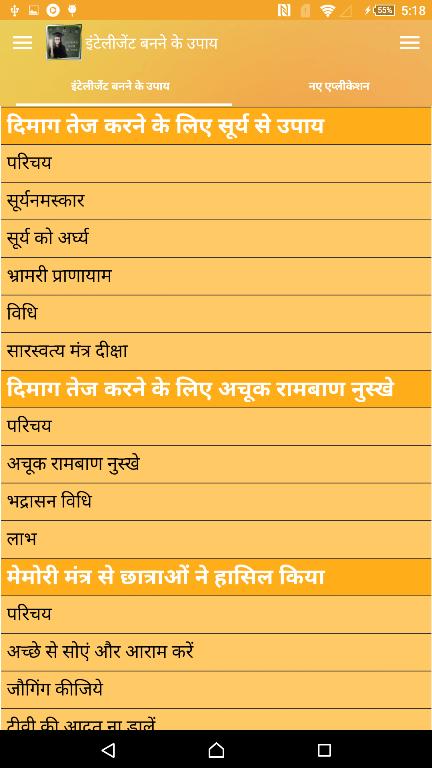 55% 5:18
इंटेलीजेंट बनने के उपाय
इंटेलीजेंट बनने के उपाय नए एप्लीकेशन
दिमाग तेज करने के लिए सूर्य से उपाय
परिचय
सूर्यनमस्कार
सूर्य को अर्घ्य
भ्रामरी प्राणायाम
विधि
सारस्वत्य मंत्र दीक्षा
दिमाग तेज करने के लिए अचूक रामबाण नुस्खे
परिचय
अचूक रामबाण नुस्खे
भद्रासन विधि
लाभ
मेमोरी मंत्र से छात्राओं ने हासिल किया
परिचय
अच्छे से सोएं और आराम करें
जौगिंग कीजिये
टीवी की आदत ना डालें